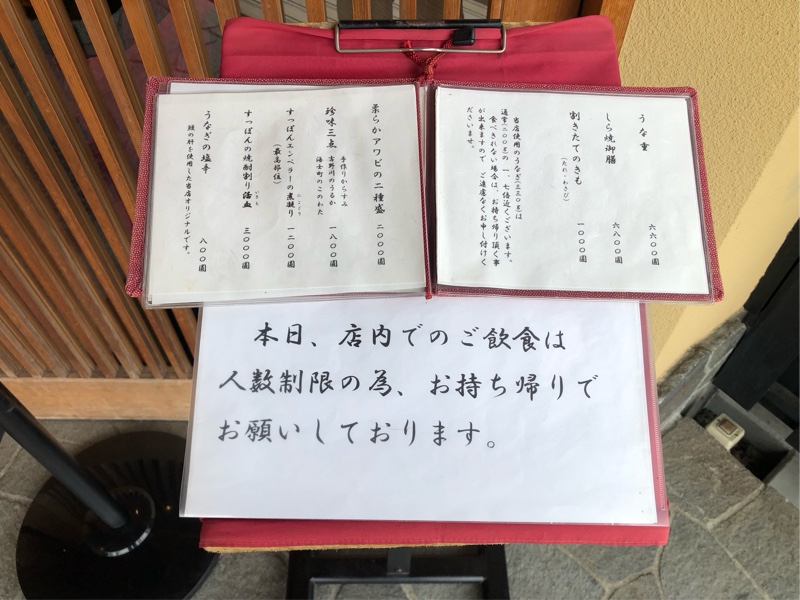 うな重
六六〇〇圓
しら焼御膳
六八〇〇圓
割きたてのきも
(たれ・わさび)
一〇〇〇圓
当店使用のうなぎ(三三〇g)は
通常(二〇〇g)の一・七倍近くございます。
食べきれない場合は、お持ち帰り頂く事
が出来ますので、ご遠慮なくお申し付けく
ださいませ。
柔らかアワビの二種盛
二〇〇〇圓
珍味三点
手作りからすみ
吉野川のうるか
海士町のこのわた
一八〇〇圓
すっぽんエンペラーの煮凝り
にこごり
(最高部位)
一二〇〇圓
すっぽんの焼酎割り活血
いきち
三〇〇〇圓
うなぎの塩辛
鰻の肝を使用した当店オリジナルです。
八〇〇圓
本日、店内でのご飲食は
人数制限の為、お持ち帰りで
お願いしております。